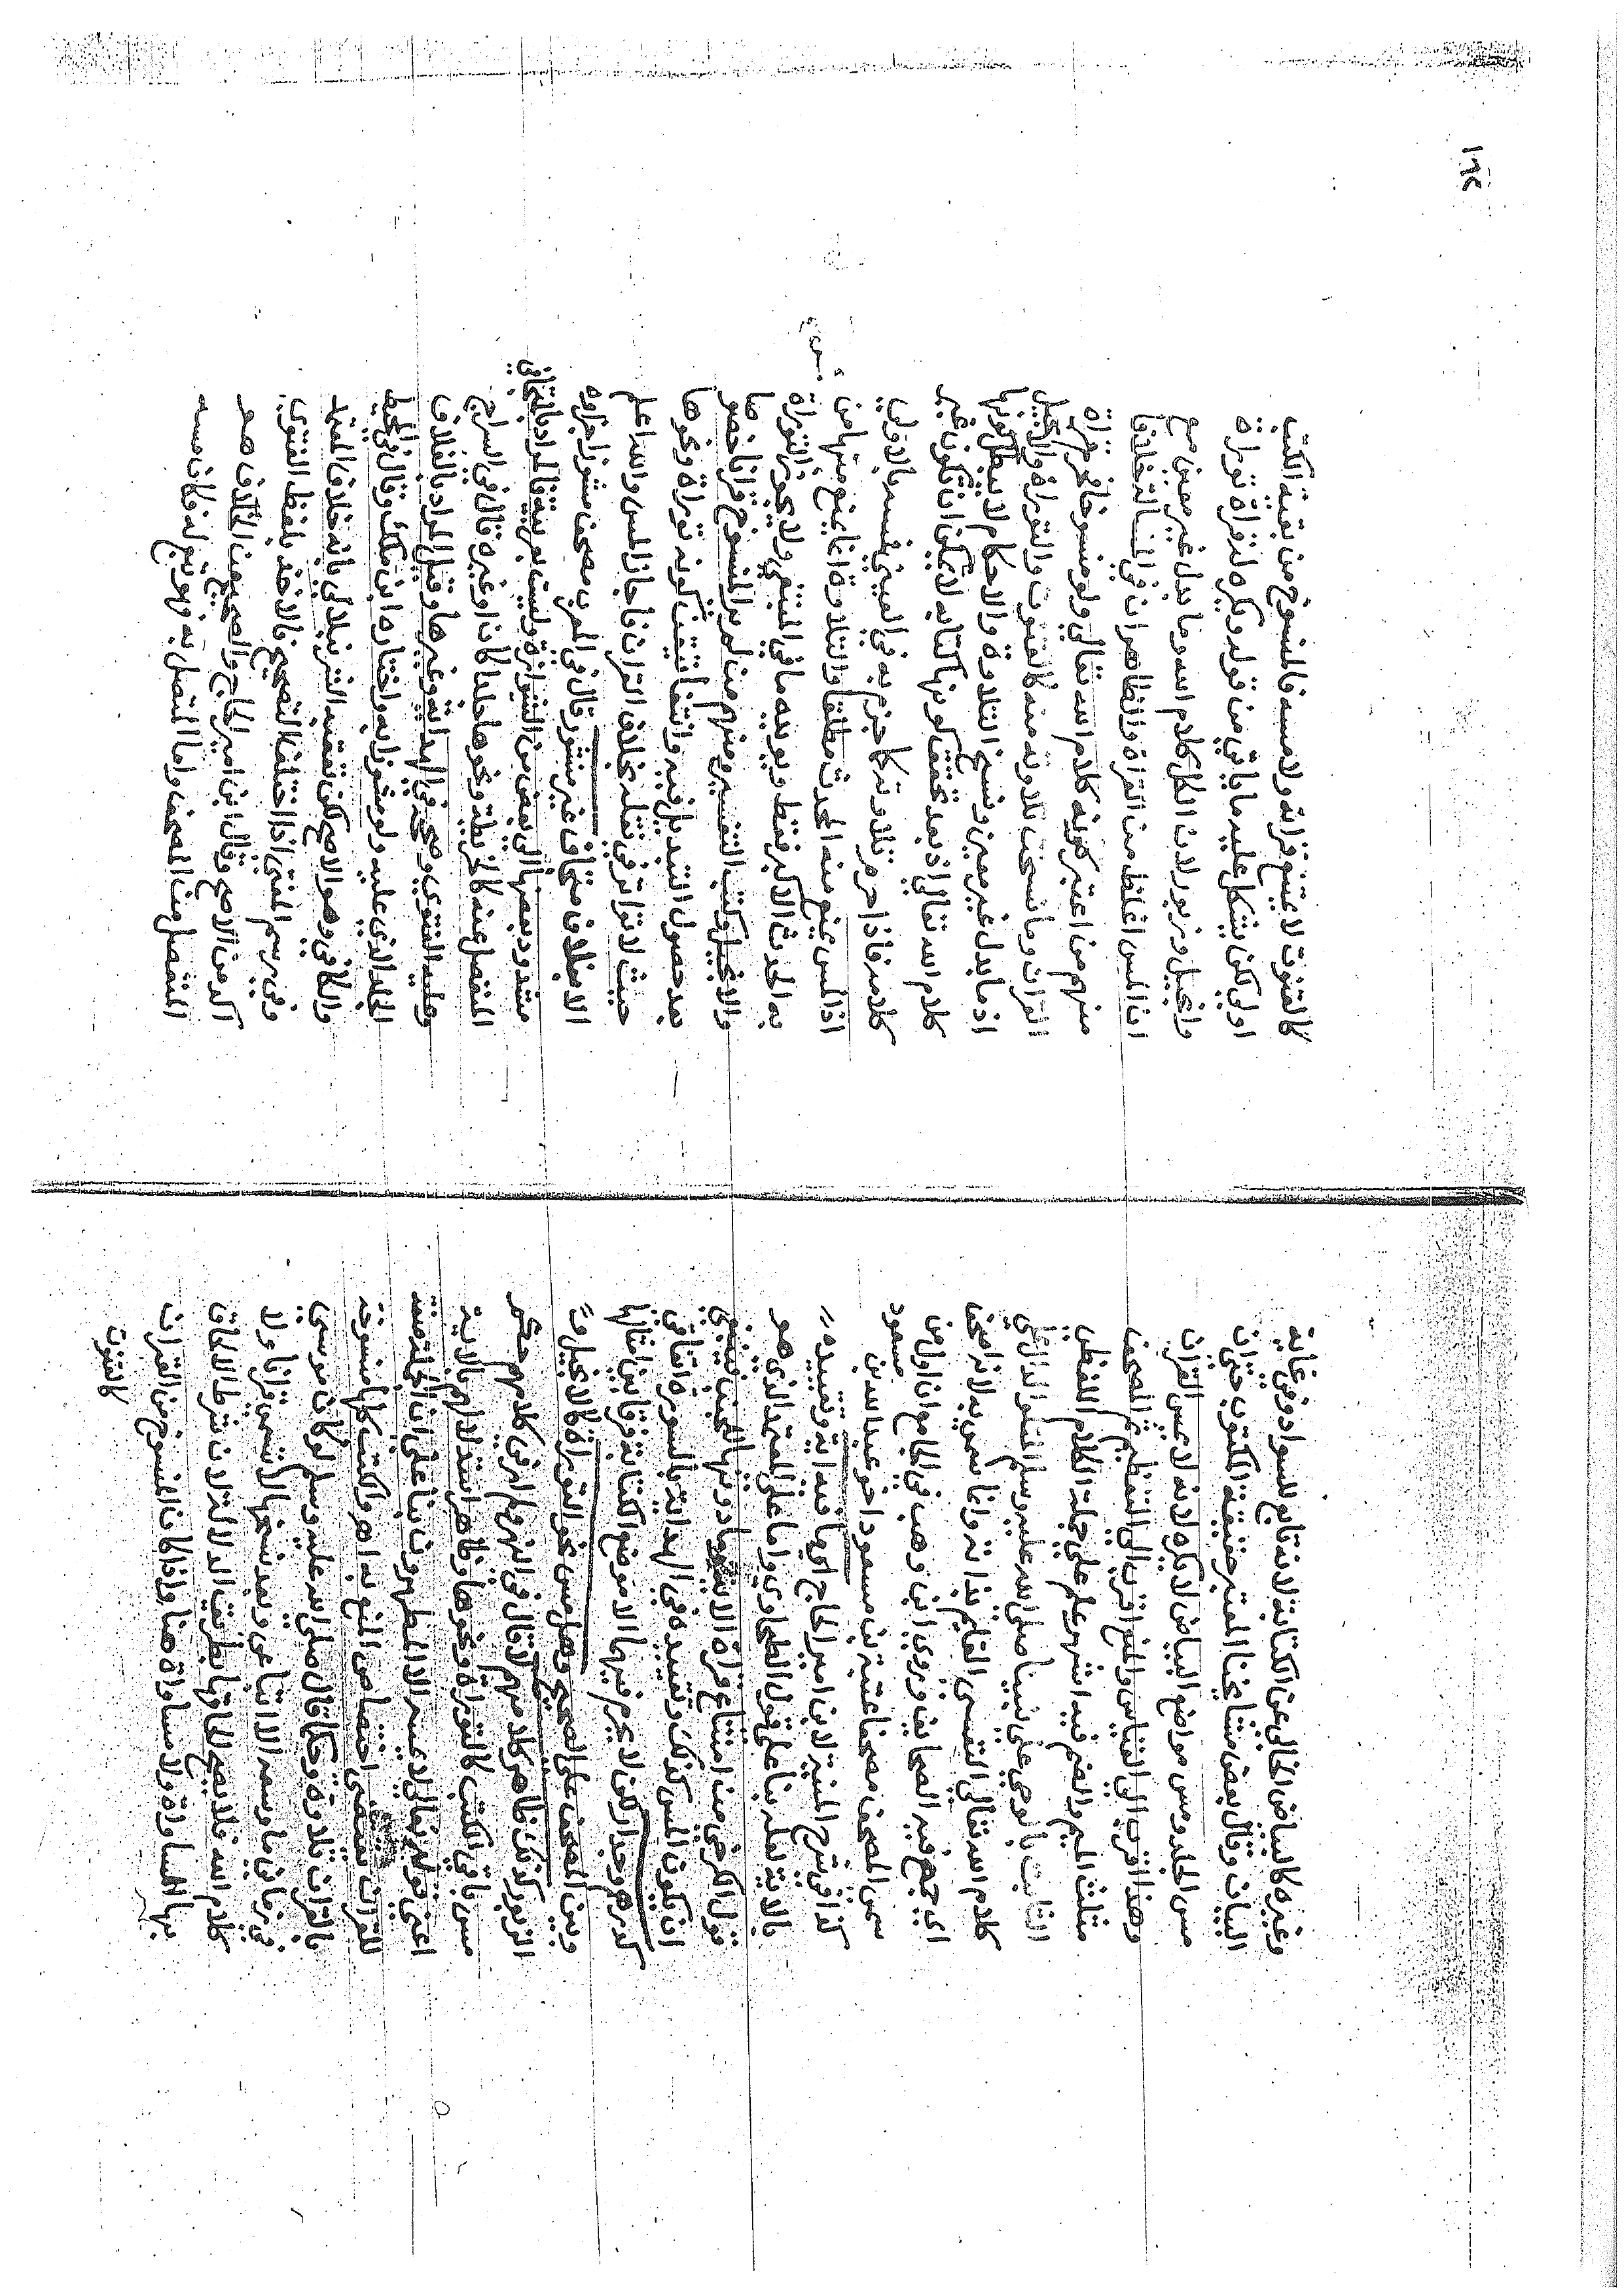 وغيره كالبياض الخالي عن الكتابة لانه تابع للسواد وفي غاية
البيان وقال بعض مشايخنا المعتبر حقيقة المكتوب حتى ان
مس الجلد ومس مواضع البياض لا يكره لانه لا يمس القران
وهذا اقرب الى القياس والمنع اقرب الى التعظيم ثم المصحف
مثلث الميم والضم فيه اشهر علم على جملة الكلام اللفظي
الثابت بالوحي على نبينا صلى الله عليه وسلم المتلو الدال على
كلام الله تعالى النفسي القايم بذاته وانما سمي به لانه اصحف
اي جمع فيه الصحايف وروى ابن وهب في الجامع ان اول من
سمى المصحف مصحفا عتبة بن مسعود اخو عبد الله بن مسعود
كذا في شرح المنية لابن امير الحاج اي ما فيه اية وتقييده
بالاية لعله بناء على قول الطحاوي واما على المعتمد الذي هو
قول الكرخي من امتناع قراة الاية وما دونها للجنب فينبغي
ان يكون المس كذلك وتقييده في الهداية بالسورة اتفاقي
كدرهم وجدار لكن لا يحرم فيها الا موضع الكتابة فرقا بين امثالها
وبين المصحف على الصحيح وهل مس نحو التوراة كالانجيل و
الزبور كذلك ظاهر كلامهم لا قال في النهر ولم ار في كلامهم حكم
مس باقي الكتب كالتوراة ونحوها وظاهر استدلالهم بالاية
اعني قوله تعالى لا يمسه الا المطهرون بناء على ان الجملة صفة
للقران يقتضي اختصاص المنع به اهـ والكتب كلها منسوخة
بالقران تلاوة وحكما قال صلى الله عليه وسلم لو كان موسى
في زماني ما وسعه الا اتباعي وبعد نسخها لا تسمى قرانا ولا
كلام الله فلا يصح الحاقها بطريق الدلالة لان شرط الالحاق
بها المساواة ولا مساواة هنا واذا كان المنسوخ من القران
كالقنوت
١٦٤
كالقنوت لا يمتنع قراته ولا مسه فالمنسوخ من بقية الكتب
اولى لكن يشكل عليه ما ياتي من قوله ويكره له قراة توراة
وانجيل وزبور لان الكل كلام الله وما بدل غير معين مع
ان المس اغلظ من القراة والظاهر ان في المسالة خلافا
منهم من اعتبر كونه كلام الله تعالى ولو منسوخا فحرم قراة
القران وما نسخت تلاوته منه كالقنوت والتوراة والانجيل
اذ ما بدل غير معين ونسخ التلاوة والاحكام لا يبطل كونها
كلام الله تعالى اذ بعد تحقق كونها كتابه لا يمكن ان تكون غير
كلامه فاذا حرم تلاوته كما جزم به في العيني فمسه بالاولى
اذ المس يمنع منه المحدث مطلقا والتلاوة انما يمنع منها من
به الحدث الاكبر فقط ويويده ما في المبتغى ولا يجوز مس التوراة
والانجيل وكتب التفسير ومنهم من لم ير المنسوخ قرانا خصوصا
بعد حصول التبديل فيه وانتفا تيقن كونه توراة ونحوها
حيث لا تواتر في نقله بخلاف القران فاجاز المس والله اعلم
الا بغلاف متجاف غير مشرز قال في المغرب مصحف مشرز اجزاوه
مشدود بعضها الى بعض من الشيرازة وليست بعربية فالمراد بالمتجافي
المنفصل عنه كالخريطة ونحوها جلدا كان او غيره قال في السراج
وعليه الفتوى وصححه في الهداية وغيرها وقيل المراد بالغلاف
الجلد الذي عليه ولو مشرزا به واختاره ابن ملك وقال في المحيط
والكافي وهو الاصح لكن تعقبه الشرنبلالي بانه خلاف المعتمد
وفي رسم المفتي اذا اختلف التصحيح فالاخذ بلفظ الفتوى
اكد من الاصح وقال ابن امير الحاج والصحيح من الغلاف هو
المنفصل من المصحف واما المتصل به فهو تبع له فكان مسه